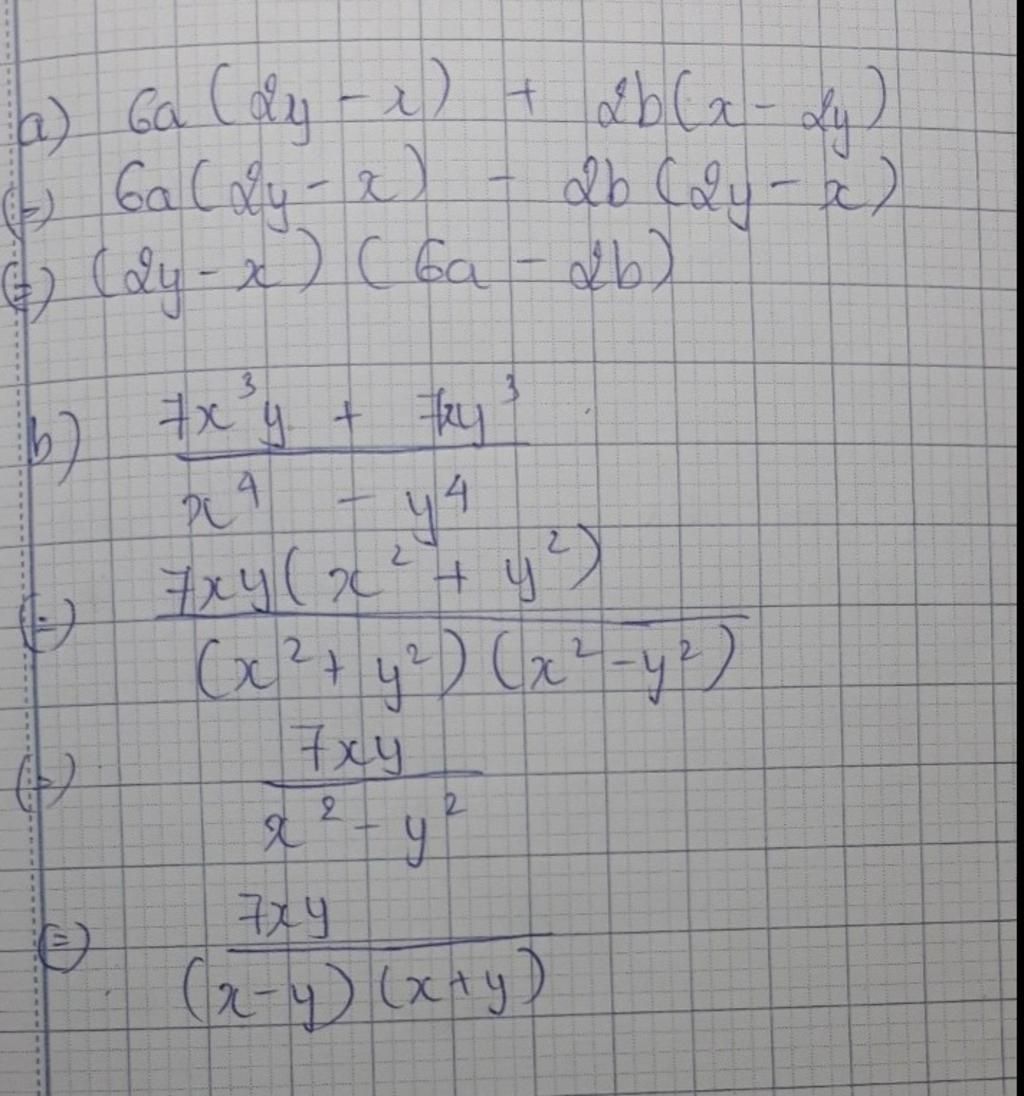 a) 6a (2y - x) + 2b(x - 2y)
(=) 6a (2y - x) - 2b (2y - x)
(=) (2y - x) (6a - 2b)
b) 7x³y + 7xy³
x⁴ - y⁴
(=) 7xy (x² + y²)
(x² + y²) (x² - y²)
(=) 7xy
x² - y²
(=) 7xy
(x - y) (x + y)